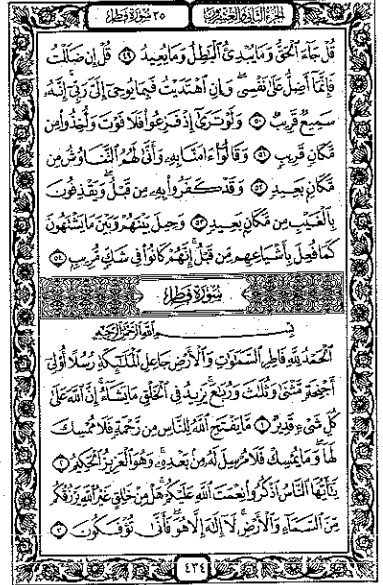 الجزء الثاني والعشرون ٣٥ سورة فاطر
قُلْ جَاءَ الْحَقُّ وَمَا يُبْدِئُ الْبَاطِلُ وَمَا يُعِيدُ ٤٩ قُلْ إِن ضَلَلْتُ
فَإِنَّمَا أَضِلُّ عَلَىٰ نَفْسِي وَإِنِ اهْتَدَيْتُ فَبِمَا يُوحِي إِلَيَّ رَبِّي إِنَّهُ
سَمِيعٌ قَرِيبٌ ٥٠ وَلَوْ تَرَىٰ إِذْ فَزِعُوا فَلَا فَوْتَ وَأُخِذُوا مِن
مَّكَانٍ قَرِيبٍ ٥١ وَقَالُوا آمَنَّا بِهِ وَأَنَّىٰ لَهُمُ التَّنَاوُشُ مِن
مَّكَانٍ بَعِيدٍ ٥٢ وَقَدْ كَفَرُوا بِهِ مِن قَبْلُ وَيَقْذِفُونَ
بِالْغَيْبِ مِن مَّكَانٍ بَعِيدٍ ٥٣ وَحِيلَ بَيْنَهُمْ وَبَيْنَ مَا يَشْتَهُونَ
كَمَا فُعِلَ بِأَشْيَاعِهِم مِّن قَبْلُ إِنَّهُمْ كَانُوا فِي شَكٍّ مُّرِيبٍ ٥٤
سورة فاطر
بِسْمِ اللَّهِ الرَّحْمَٰنِ الرَّحِيمِ
الْحَمْدُ لِلَّهِ فَاطِرِ السَّمَاوَاتِ وَالْأَرْضِ جَاعِلِ الْمَلَائِكَةِ رُسُلًا أُولِي
أَجْنِحَةٍ مَّثْنَىٰ وَثُلَاثَ وَرُبَاعَ يَزِيدُ فِي الْخَلْقِ مَا يَشَاءُ إِنَّ اللَّهَ عَلَىٰ
كُلِّ شَيْءٍ قَدِيرٌ ١ مَّا يَفْتَحِ اللَّهُ لِلنَّاسِ مِن رَّحْمَةٍ فَلَا مُمْسِكَ
لَهَا وَمَا يُمْسِكْ فَلَا مُرْسِلَ لَهُ مِن بَعْدِهِ وَهُوَ الْعَزِيزُ الْحَكِيمُ ٢
يَا أَيُّهَا النَّاسُ اذْكُرُوا نِعْمَتَ اللَّهِ عَلَيْكُمْ هَلْ مِنْ خَالِقٍ غَيْرُ اللَّهِ يَرْزُقُكُم
مِّنَ السَّمَاءِ وَالْأَرْضِ لَا إِلَٰهَ إِلَّا هُوَ فَأَنَّىٰ تُؤْفَكُونَ ٣
٤٣٤